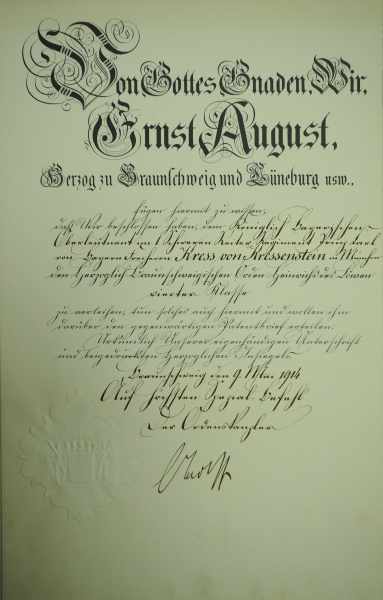 Von Gottes Gnaden, Wir,
Ernst August,
Herzog zu Braunschweig und Lüneburg usw.,
fügen hiermit zu wissen,
daß Wir beschlossen haben, dem Königlich Bayerischen
Oberleutnant im Schweren Reiter Regiment Prinz Karl
von Bayern Freiherrn Kress von Kressenstein in München
den Herzoglich Braunschweigischen Orden Heinrichs des Löwen
vierter Klasse
zu verleihen, tun solches auch hiermit und wollen ihm
darüber den gegenwärtigen Patentbrief erteilen.
Urkundlich Unserer eigenhändigen Unterschrift
und beigedruckten Herzoglichen Insiegels.
Braunschweig den 9 Mai 1914
Auf Höchsten Spezial-Befehl
Der Ordenskanzler